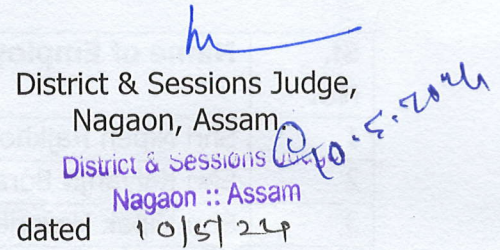 District & Sessions Judge,
Nagaon, Assam.
10.5.2024
District & Sessions Judge
Nagaon :: Assam
dated 10/5/24